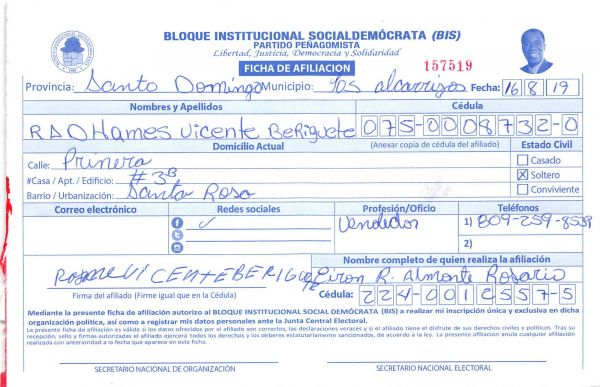 BLOQUE INSTITUCIONAL SOCIALDEMÓCRATA (BIS)
PARTIDO PEÑAGOMISTA
Libertad, Justicia, Democracia y Solidaridad
FICHA DE AFILIACION 157519
Provincia: Santo Domingo Municipio: Los alcarrizos Fecha: 16/8/19
Nombres y Apellidos Cédula
RADHames Vicente BeRiguete 075-0008732-0
Domicilio Actual (Anexar copia de cédula del afiliado) Estado Civil
Calle: Primera Casado
#Casa / Apt. / Edificio: #3B Soltero
Barrio / Urbanización: Santa Rosa Conviviente
Correo electrónico Redes sociales Profesión/Oficio Teléfonos
Vendedor 1) 809-259-8539
2)
Nombre completo de quien realiza la afiliación
VICENTE BERIGUETE R. Almonte Rosario
Firma del afiliado (Firme igual que en la Cédula) Cédula: 224-0012557-5
Mediante la presente ficha de afiliación autorizo al BLOQUE INSTITUCIONAL SOCIAL DEMÓCRATA (BIS) a realizar mi inscripción única y exclusiva en dicha
organización política, así como a registrar mis datos personales ante la Junta Central Electoral.
La presente ficha de afiliación es válida si los datos ofrecidos por el afiliado son correctos, las declaraciones veraces y si el afiliado tiene el disfrute de sus derechos civiles y políticos. Tras su
recepción, sello y firmas autorizadas el afiliado ejercerá todos los derechos y los deberes estatutariamente sancionados, de acuerdo a la ley. La presente afiliación anula cualquier afiliación
realizada con anterioridad a la fecha que aparece en esta ficha.
SECRETARIO NACIONAL DE ORGANIZACIÓN SECRETARIO NACIONAL ELECTORAL